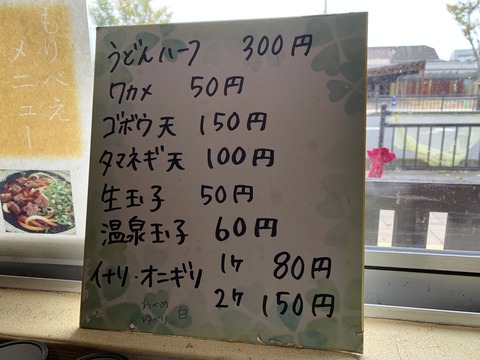 もりべえ
メニュー
うどんハーフ 300円
ワカメ 50円
ゴボウ天 150円
タマネギ天 100円
生玉子 50円
温泉玉子 60円
イナリ・オニギリ 1ケ 80円
2ケ 150円